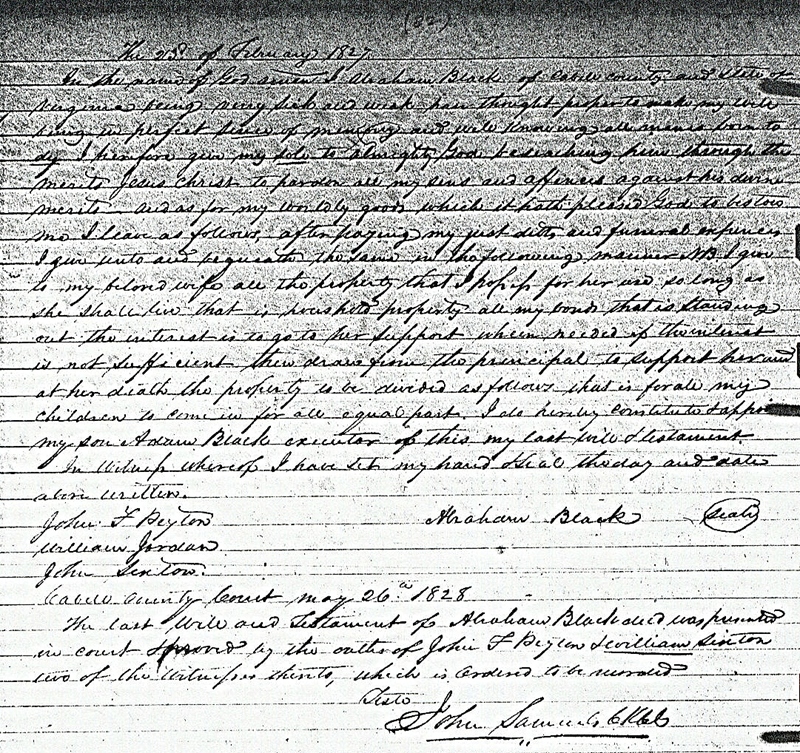 (22)
The 23d of February 1827
In the name of God amen I Abraham Black of Cabell county and State of
Virginia being very sick and weak have thought proper to make my will
being in perfect since of memory and well knowing all man is born to
dy Iherefore give my sole to almighty God beseaching him through the
merits Jesus christ to pardon all my sins and offences against his divine
merits and as for my worldly goods which it hath pleasd God to bestow
me I leave as follows, after paying my just debts and funeral expences
I give unto and bequeath the same in the following manner NB I give
to my beloved wife all the property that I possess for her use so long as
she shall live that is household property all my bonds that is standing
out the interest is to go to her support when needed if the interest
is not sufficient then draw from the principal to support her and
at her death the property to be divided as follows that is for all my
children to come in for all equal part. I do hereby constitute & appoint
my son Adam Black executor of this my last will & testament
In Witness whereof I have set my hand & seal the day and date
above written.
John F Peyton Abraham Black (Seal)
William Jordan
John Sexton.
Cabell County Court may 26th 1828
The last Will and Testament of Abraham Black decd was presented
in court & proved by the oaths of John F Peyton & william Sexton
two of the Witnesses thereto, which is ordered to be recorded
Teste
John Samuels Clk